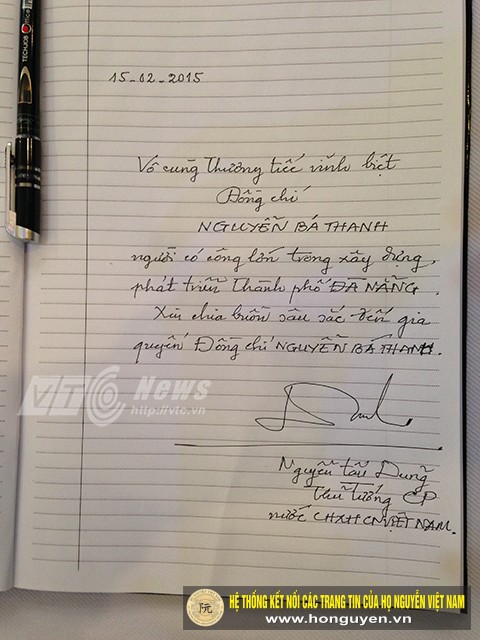 TECHJOB Office
15-02-2015
Vô cùng thương tiếc vĩnh biệt
Đồng chí
NGUYỄN BÁ THANH
người có công lớn trong xây dựng,
phát triển thành phố ĐÀ NẴNG.
Xin chia buồn sâu sắc đến gia
quyến Đồng chí NGUYỄN BÁ THANH.
VTC News
http://vtc.vn
Nguyễn Tấn Dũng
Thủ tướng CP
nước CHXHCN VIỆT NAM.
HỆ THỐNG KẾT NỐI CÁC TRANG TIN CỦA HỌ NGUYỄN VIỆT NAM
www.honguyen.vn